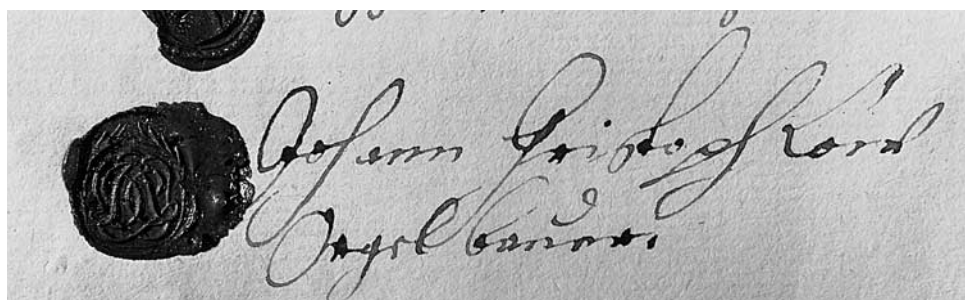 Johann Christoph Löw
Orgelbauer.